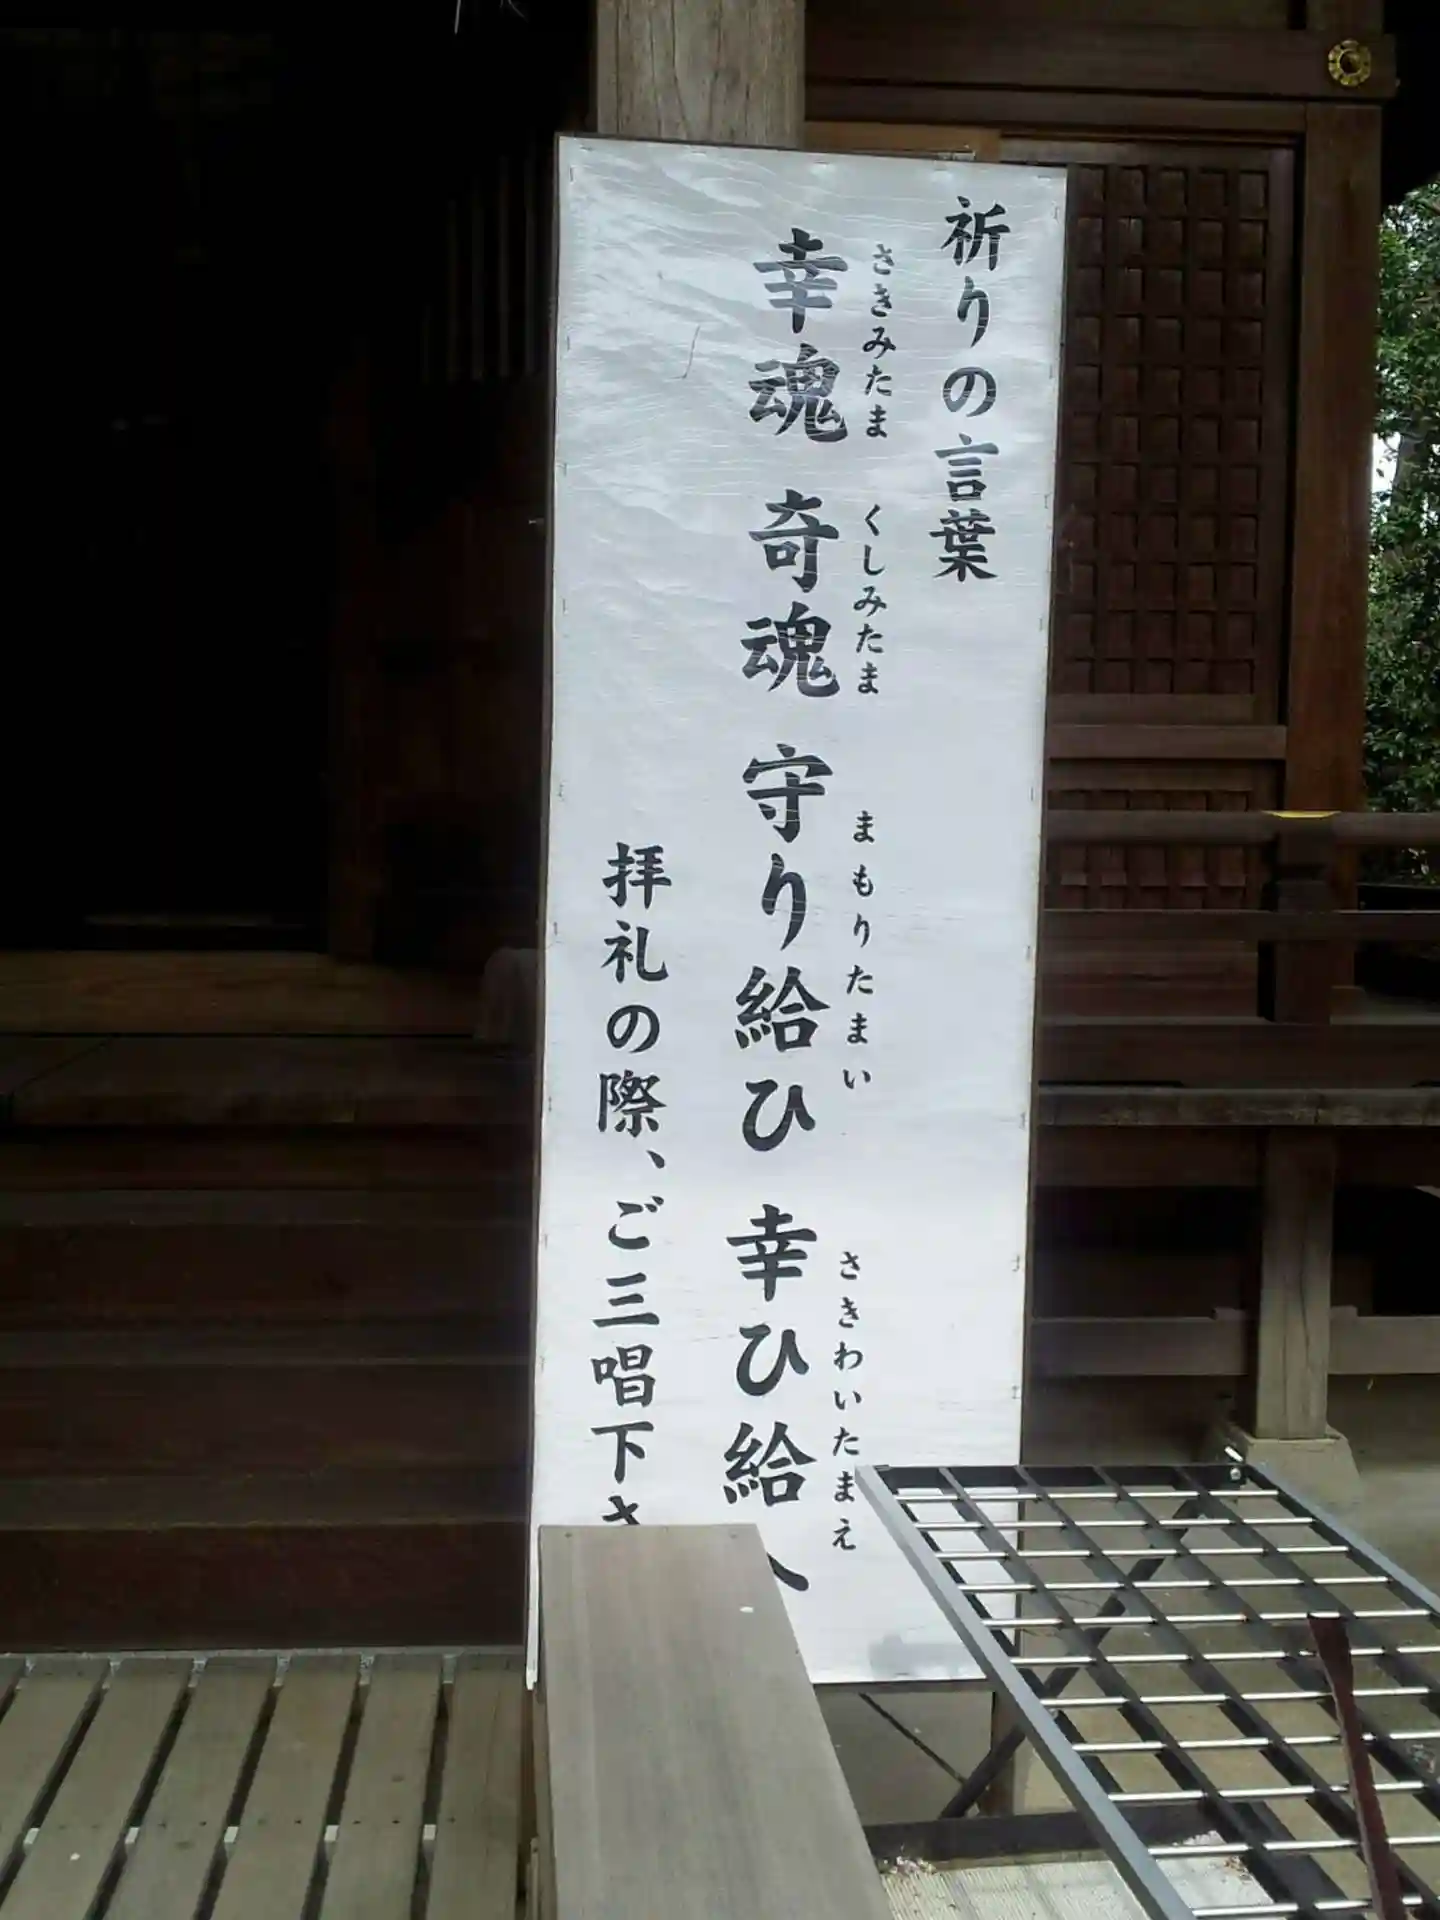 祈りの言葉
さきみたま くしみたま まもりたまい さきわいたまえ
幸魂 奇魂 守り給ひ 幸ひ給へ
拝礼の際、ご三唱下さ